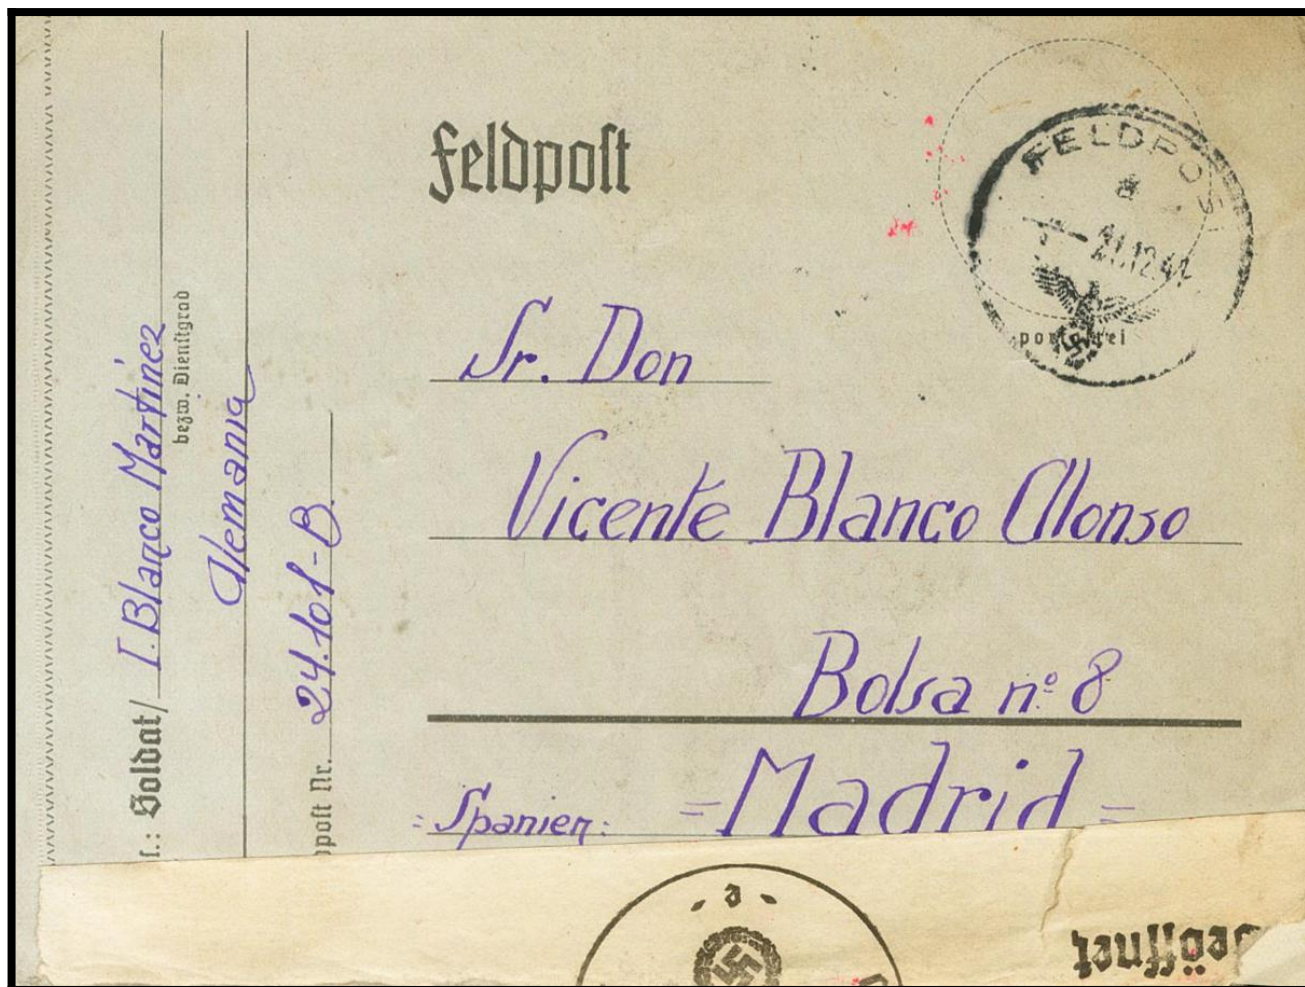 Feldpost
FELDPOST
a
21.12.42
postfrei
Sr. Don
Vicente Blanco Alonso
Bolsa nº 8
=Spanien: =Madrid=
.: Soldat/ I. Blanco Martínez
bezw. Dienstgrad
Alemania
post Nr. 24.101-B.
Geöffnet
e